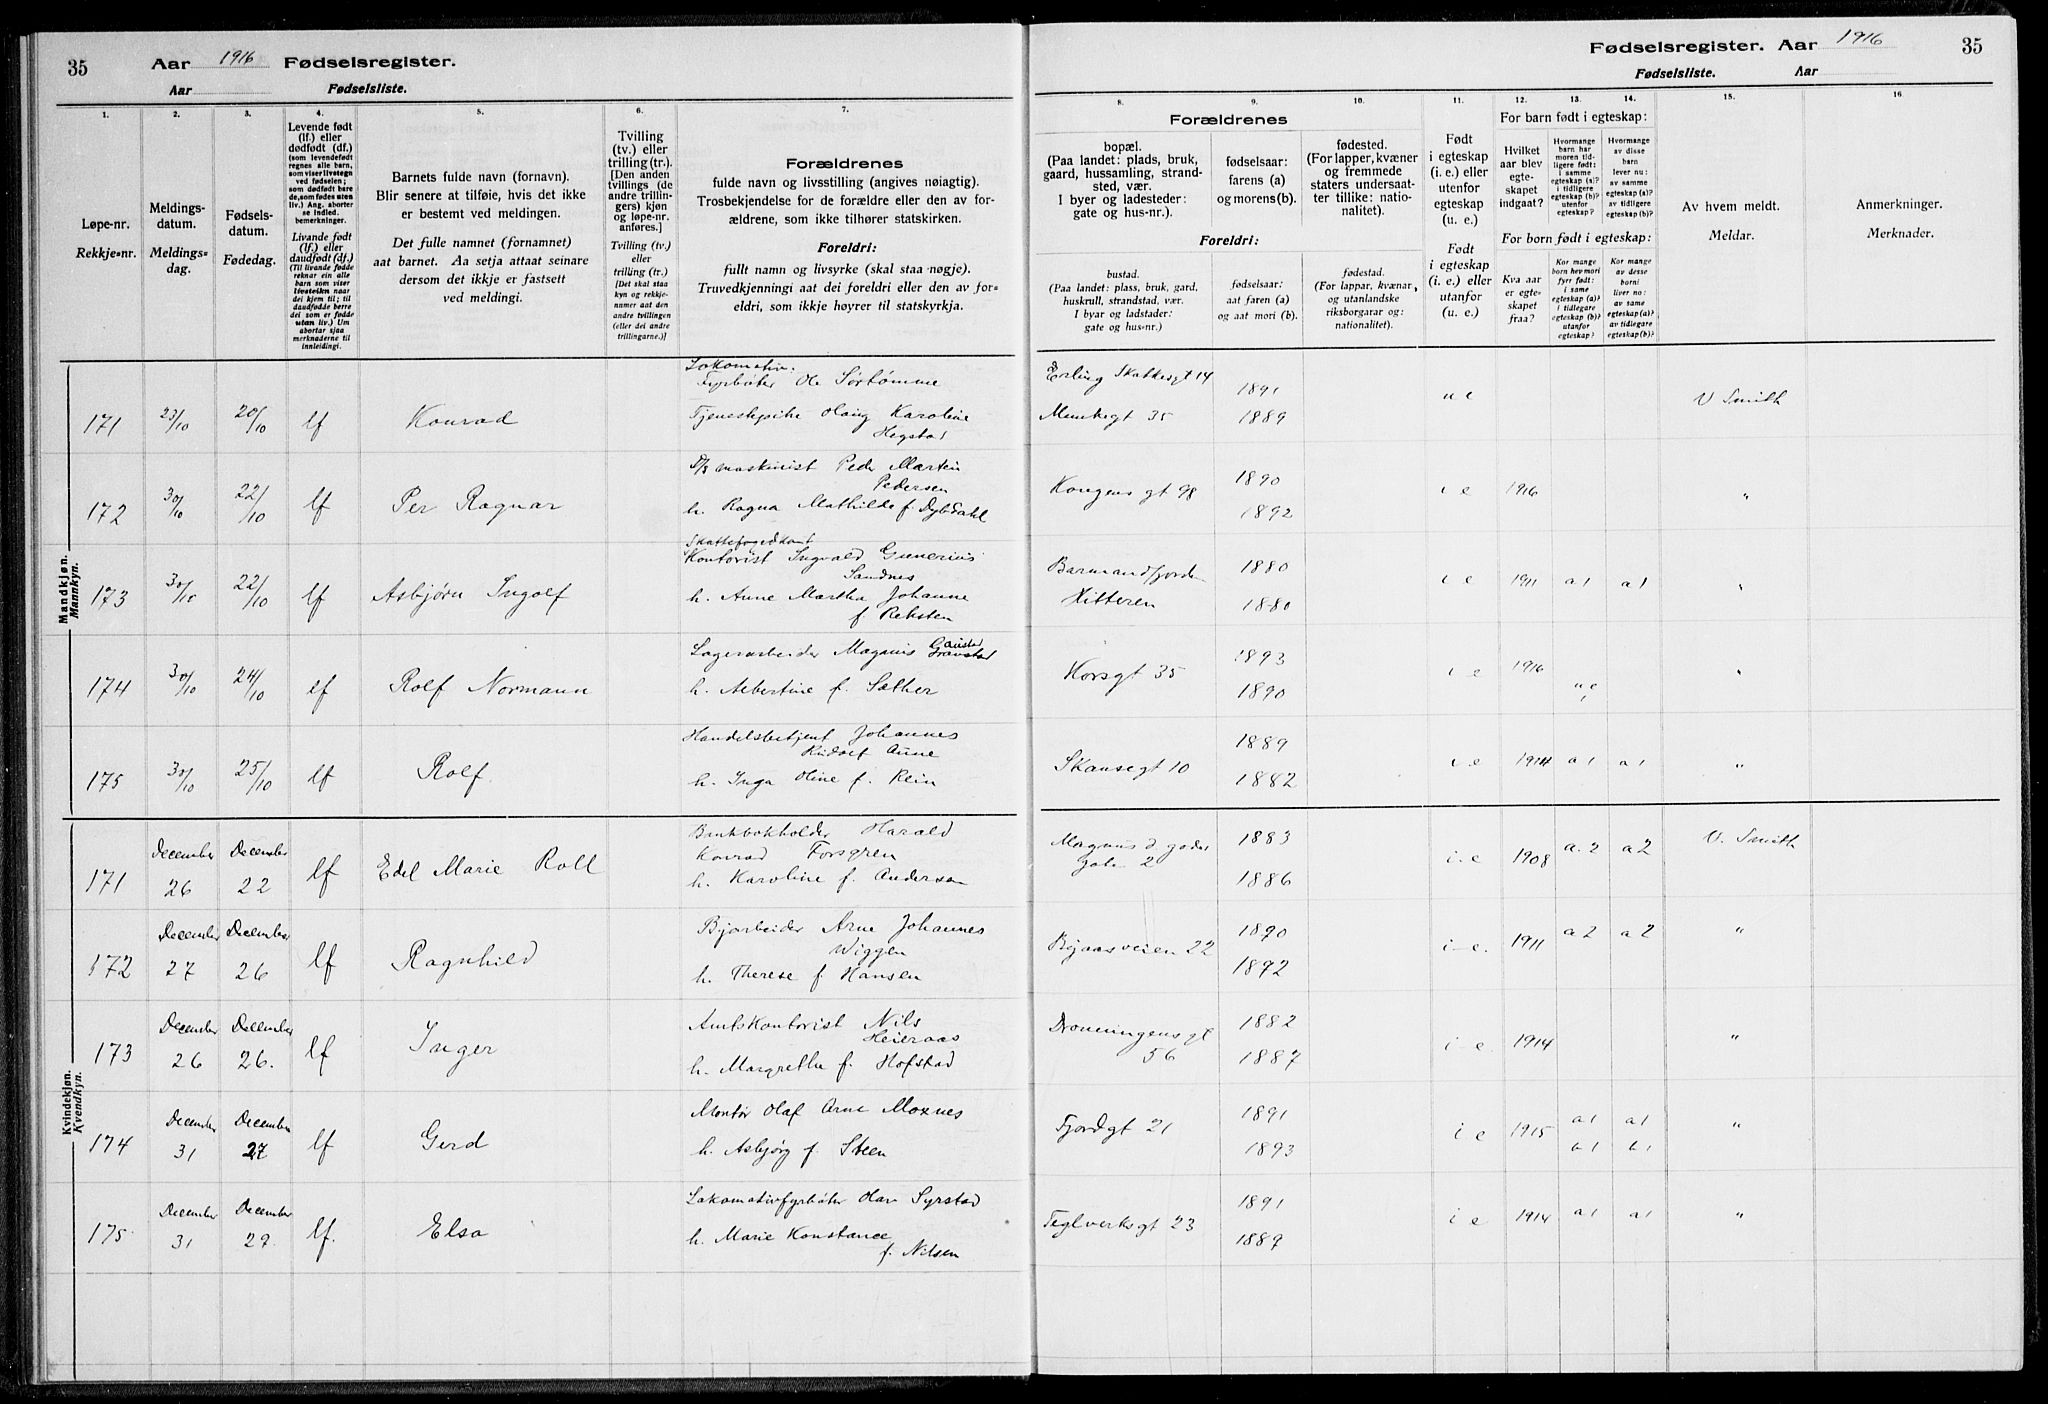 35
Aar 1916 Fødselsregister.
Aar Fødselsliste.
Fødselsregister. Aar 1916
35
Fødselsliste. Aar
1. 2. 3. 4. 5. 6. 7. 8. 9. 10. 11. 12. 13. 14. 15. 16.
Løpe-nr.
Rekkje=nr.
Meldings-
datum.
Meldings=
dag.
Fødsels-
datum.
Fødedag.
Levende født
(lf.) eller
dødfødt (df.)
(som levendefødt
regnes alle barn,
som viser livstegn
ved fødselen;
som dødfødt bare
de, som fødes uten
liv.) Ang. aborter
se indled.
bemerkninger.
Livande født
(lf.) eller
daudfødt (df.)
(Til livande fødde
reknar ein alle
barn som viser
livsteikn naar
dei kjem til; til
daudfødde berre
dei som er fødde
utan liv.) Um
abortar sjaa
merknaderne til
innleidingi.
Barnets fulde navn (fornavn).
Blir senere at tilføie, hvis det ikke
er bestemt ved meldingen.
Det fulle namnet (fornamnet)
aat barnet. Aa setja attaat seinare
dersom det ikkje er fastsett
ved meldingi.
Tvilling
(tv.) eller
trilling (tr.).
[Den anden
tvillings (de
andre trillin-
gers) kjøn
og løpe-nr.
anføres.]
Tvilling (tv.)
eller
trilling (tr.)
[Det skal staa
kyn og rekkje=
nummer aat den
andre tvillingen
(eller dei andre
trillingarne.)]
Forældrenes
fulde navn og livsstilling (angives nøiagtig).
Trosbekjendelse for de forældre eller den av for-
ældrene, som ikke tilhører statskirken.
Foreldri:
fullt namn og livsyrke (skal staa nøgje).
Truvedkjenningi aat dei foreldri eller den av for=
eldri, som ikkje høyrer til statskyrkja.
Forældrenes
bopæl.
(Paa landet: plads, bruk,
gaard, hussamling, strand-
sted, vær.
I byer og ladesteder:
gate og hus-nr.).
fødselsaar:
farens (a)
og morens (b).
fødested.
(For lapper, kvæner
og fremmede
staters undersaat-
ter tillike: natio-
nalitet).
Foreldri:
bustad.
(Paa landet: plass, bruk, gard,
huskrull, strandstad, vær.
I byar og ladstader:
gate og hus=nr.)
fødselsaar:
aat faren (a)
og aat mori (b).
fødestad.
(For lappar, kvænar,
og utanlandske
riksborgarar og:
nationalitet).
Født
i egteskap
(i. e.) eller
utenfor
egteskap
(u. e.)
Født
i egteskap
(i. e.) eller
utanfor
(u. e.)
For barn født i egteskap:
Hvilket
aar blev
egte-
skapet
indgaat?
Hvormange
barn har
moren tid-
ligere født:
i samme
egteskap (a)?
i tidligere
egteskap (b)?
utenfor
egteskap?
Hvormange
av disse
barn
lever nu:
av samme
egteskap (a)?
av tidligere
egteskap (b)?
For born født i egteskap:
Kva aar
er egte=
skapet
fraa?
Kor mange
born hev mori
fyrr født:
i same
egteskap (a)?
i tidlegare
egteskap (b)?
utanfor
egteskap?
Kor mange
av desse
borni
liver no:
av same
egteskap (a)?
av tidlegare
egteskap (b)?
Av hvem meldt.
Meldar.
Anmerkninger.
Merknader.
Mandkjøn.
Mannkyn.
Lokomativ.
Fyrbøter Ole Sørtømme Erling Skakkesgt 14 1891
171 23/10 20/10 lf Konrad Tjenestepike Olaug Karoline Munkegt 35 1889 u e V Smith
Hegstad
D/s maskinist Peder Martin
Pedersen 1890
172 30/10 22/10 lf Per Ragnar h. Ragna Mathilde f. Dybdahl Kongens gt 98 1892 i e 1916 "
Skattefogedkont
Kontorist Ingvald Gunerius
Sandnes Barmandfjorden 1880
173 30/10 22/10 lf Asbjørn Ingolf h. Anne Martha Johanne Hitteren 1880 i e 1911 a1 a1 "
f. Reksten
Lagerarbeider Magnus Gaustad 1893
174 30/10 24/10 lf Rolf Normann h. Albertine f. Sæther Korsgt 35 1890 i e 1916 u e "
Handelsbetjent Johannes
Rudolf Aune 1889
175 30/10 25/10 lf Rolf. h. Inga Oline f. Rein Skansegt 10 1882 i e 1914 a1 a1 "
Kvindekjøn.
Kvendkyn.
Bankbokholder Harald
Konrad Forsgren Magnus d godes 1883
171 December 26 December 22 lf Edel Marie Roll h. Karoline f. Andersen gate 2 1886 i. e 1908 a. 2 a2 V. Smith
Byarbeider Arne Johannes
Wiggen 1890
172 December 27 December 26 lf Ragnhild h. Therese f. Hansen Byaasveien 22 1892 i-e. 1911 a2 a2 "
Amtskontorist Nils
Heieraas Dronningens gt 1882
173 December 26 December 26. lf Inger h. Margrethe f. Hofstad 56 1887 i-e. 1914 "
Montør Olaf Arne Moxnes 1891
174 December 31 December 27 lf Gerd h. Asbjørg f. Steen Fjordgt 21 1893 i e 1915 a1 a1 "
b1 b1
Lokomativfyrbøter Olav Syrstad 1891
175. December 31 December 29. lf. Elsa h. Marie Konstance Teglverksgt 23 1889 i e 1914 a1 a1 "
f. Nilsen